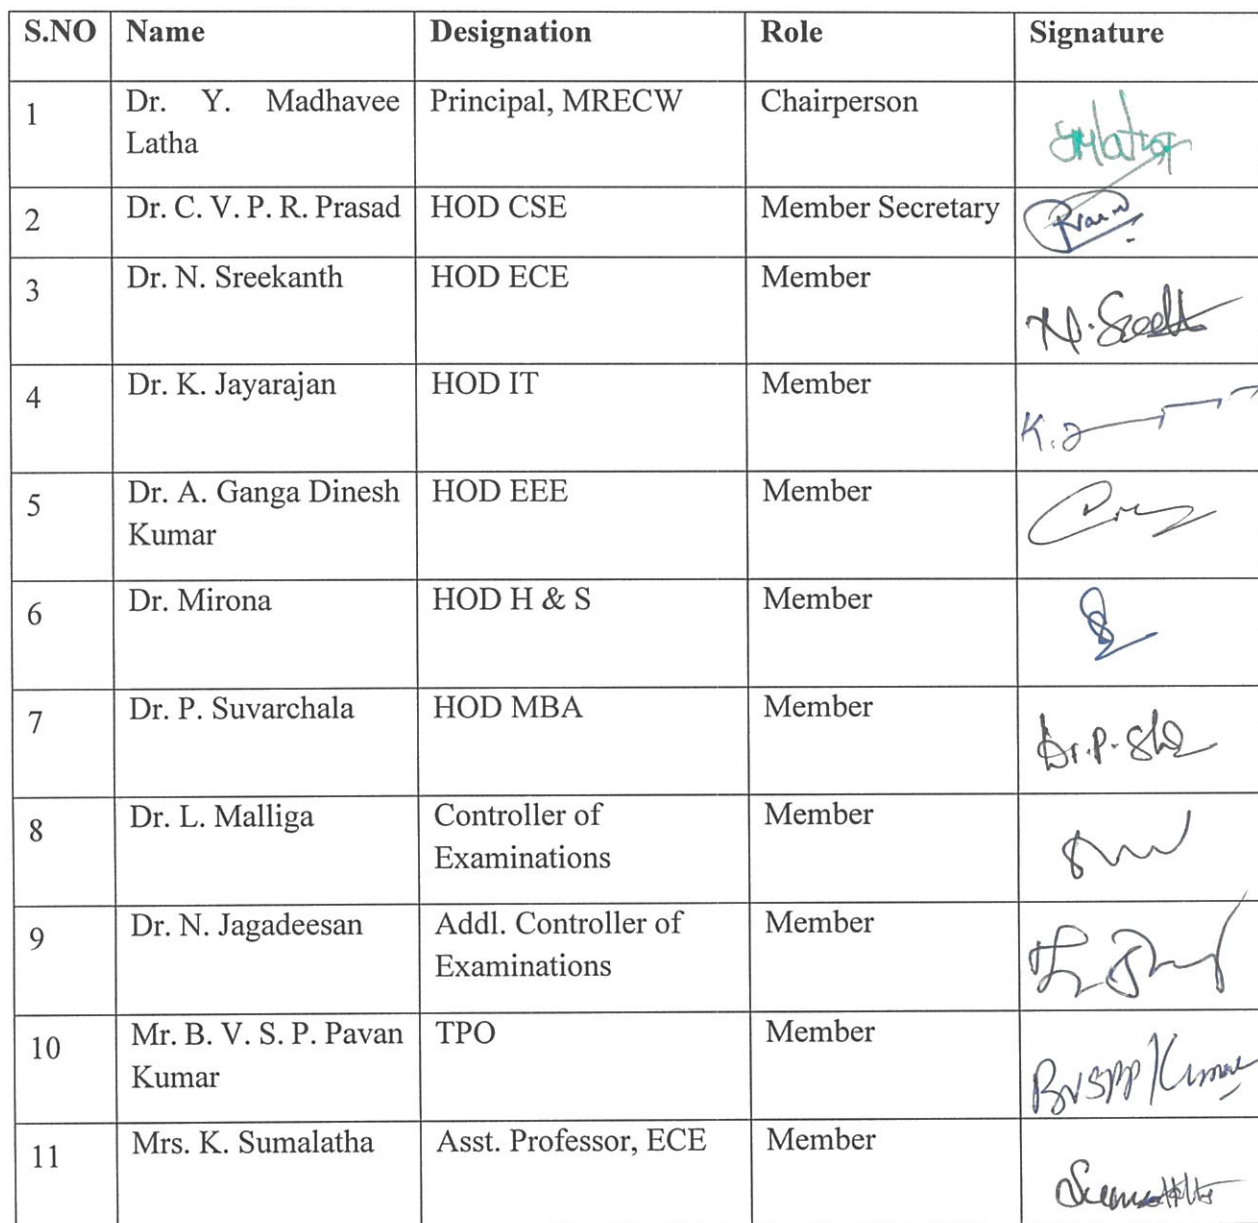 S.NO Name Designation Role Signature
1 Dr. Y. Madhavee Principal, MRECW Chairperson
Latha
2 Dr. C. V. P. R. Prasad HOD CSE Member Secretary
3 Dr. N. Sreekanth HOD ECE Member
4 Dr. K. Jayarajan HOD IT Member
5 Dr. A. Ganga Dinesh HOD EEE Member
Kumar
6 Dr. Mirona HOD H & S Member
7 Dr. P. Suvarchala HOD MBA Member
8 Dr. L. Malliga Controller of Member
Examinations
9 Dr. N. Jagadeesan Addl. Controller of Member
Examinations
10 Mr. B. V. S. P. Pavan TPO Member
Kumar BVSPP Kumar
11 Mrs. K. Sumalatha Asst. Professor, ECE Member